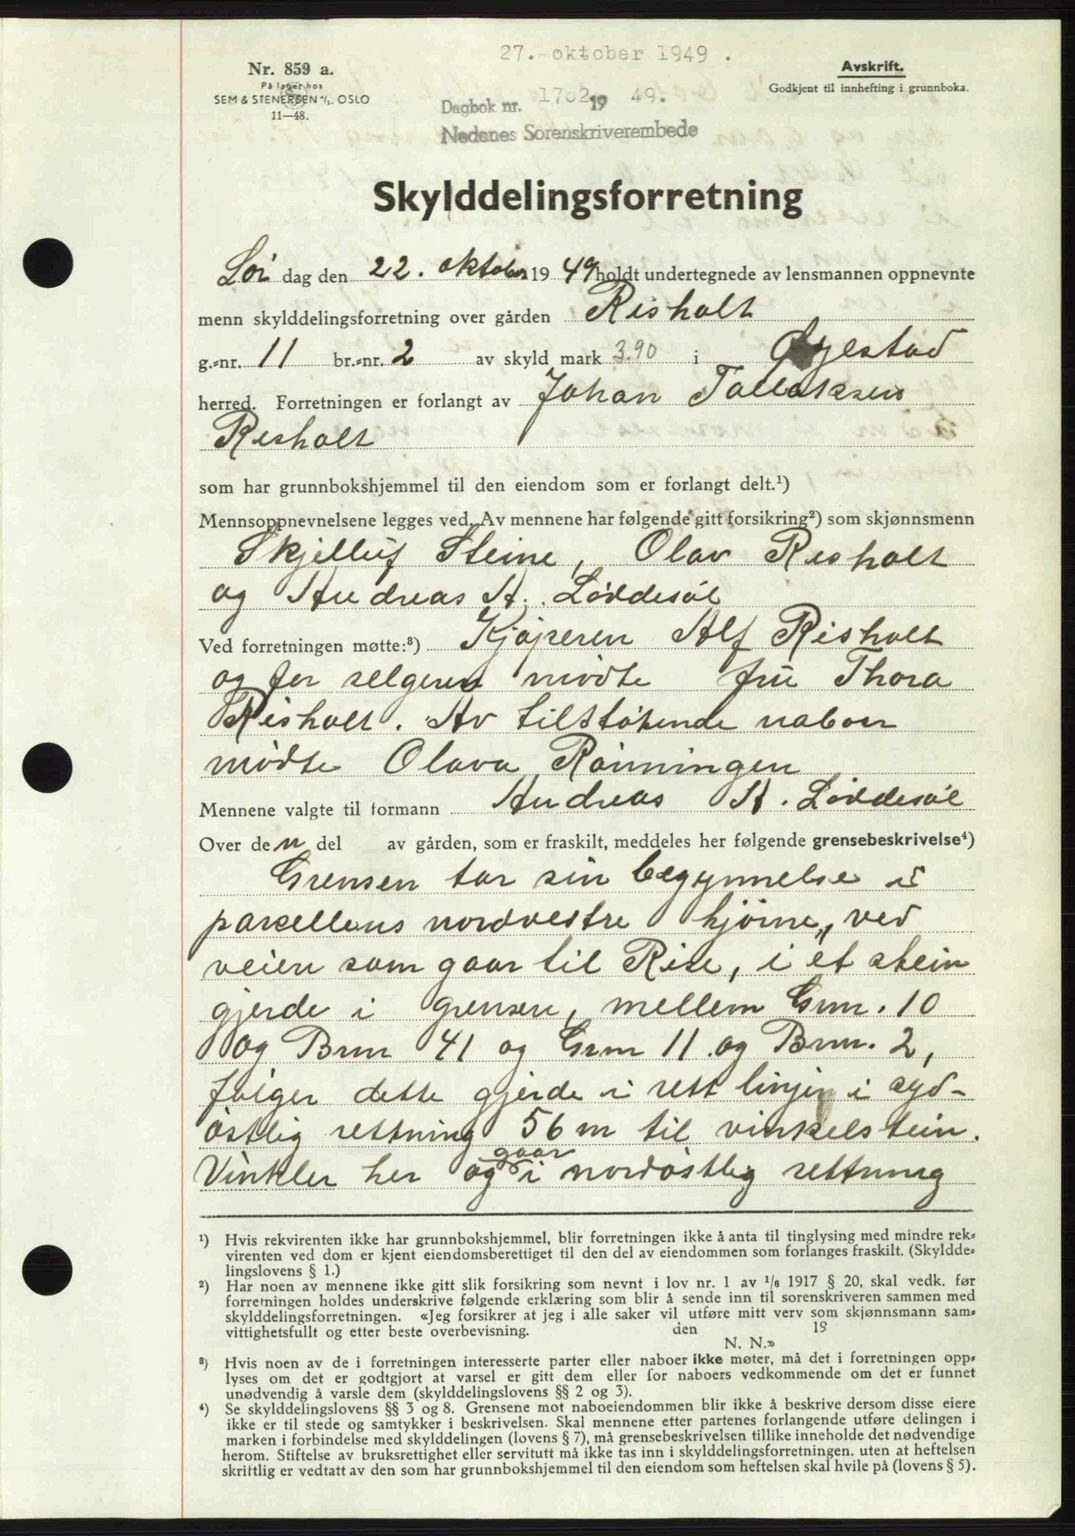 27.-oktober 1949 .
Nr. 859 a.
På lager hos
SEM & STENERSEN A/S, OSLO
11—48.
Avskrift.
Godkjent til innhefting i grunnboka.
Dagbok nr. 1702 19 49.
Nedenes Sorenskriverembede
Skylddelingsforretning
Lør dag den 22. oktober 19 49 holdt undertegnede av lensmannen oppnevnte
menn skylddelingsforretning over gården Risholt
g.-nr. 11 br.-nr. 2 av skyld mark 3.90 i Øyestad
herred. Forretningen er forlangt av Johan Tallaksen
Risholt
som har grunnbokshjemmel til den eiendom som er forlangt delt.¹)
Mennsoppnevnelsene legges ved. Av mennene har følgende gitt forsikring²) som skjønnsmenn
Skjelluf Steine, Olav Risholt
og Andreas A. Løddesøl
Ved forretningen møtte:³) Kjøperen Alf Risholt
og for selgeren mødte fru Thora
Risholt. Av tilstøtende naboer
mødte Olava Rønningen
Mennene valgte til formann Andreas A. Løddesøl
Over den del av gården, som er fraskilt, meddeles her følgende grensebeskrivelse⁴)
Grensen tar sin begynnelse i
parcellens nordvestre hjørne, ved
veien som gaar til Rise, i et stein
gjerde i grensen, mellem Gnr. 10
og Bnr 41 og Gnr 11 og Bnr. 2,
følger dette gjerde i rett linje i syd-
østlig rettning 56 m til vinkelstein.
Vinkler her og gaar i nordøstlig rettning
¹) Hvis rekvirenten ikke har grunnbokshjemmel, blir forretningen ikke å anta til tinglysing med mindre rek-
virenten ved dom er kjent eiendomsberettiget til den del av eiendommen som forlanges fraskilt. (Skyldde-
lingslovens § 1.)
²) Har noen av mennene ikke gitt slik forsikring som nevnt i lov nr. 1 av 1/6 1917 § 20, skal vedk. før
forretningen holdes underskrive følgende erklæring som blir å sende inn til sorenskriveren sammen med
skylddelingsforretningen. «Jeg forsikrer at jeg i alle saker vil utføre mitt verv som skjønnsmann sam-
vittighetsfullt og etter beste overbevisning. den 19
N. N.»
³) Hvis noen av de i forretningen interesserte parter eller naboer ikke møter, må det i forretningen opp-
lyses om det er godtgjort at varsel er gitt dem eller for naboers vedkommende om det er funnet
unødvendig å varsle dem (skylddelingslovens §§ 2 og 3).
⁴) Se skylddelingslovens §§ 3 og 8. Grensene mot naboeiendommen blir ikke å beskrive dersom disse eiere
ikke er til stede og samtykker i beskrivelsen. Skal mennene etter partenes forlangende utføre delingen i
marken i forbindelse med skylddelingen (lovens § 7), må grensebeskrivelsen tillike inneholde det nødvendige
herom. Stiftelse av bruksrettighet eller servitutt må ikke tas inn i skylddelingsforretningen. uten at heftelsen
skriftlig er vedtatt av den som har grunnbokshjemmel til den eiendom som heftelsen skal hvile på (lovens § 5).